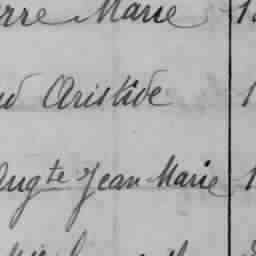 erre Marie 1
d Aristide 1
Augte Jean Marie 1